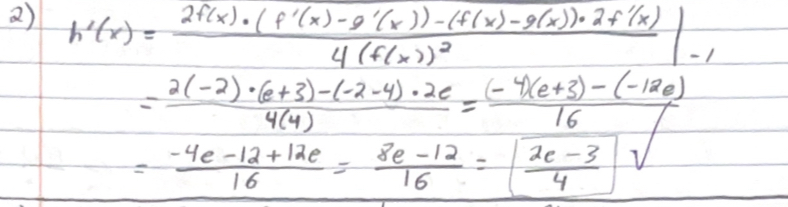 2) h'(x) = 2f(x)·(f'(x)-g'(x))-(f(x)-g(x))·2f'(x) / 4(f(x))² |₋₁
= 2(-2)·(e+3)-(-2-4)·2e / 4(4) = (-4)(e+3)-(-12e) / 16
= -4e-12+12e / 16 = 8e-12 / 16 = 2e-3 / 4 ✓